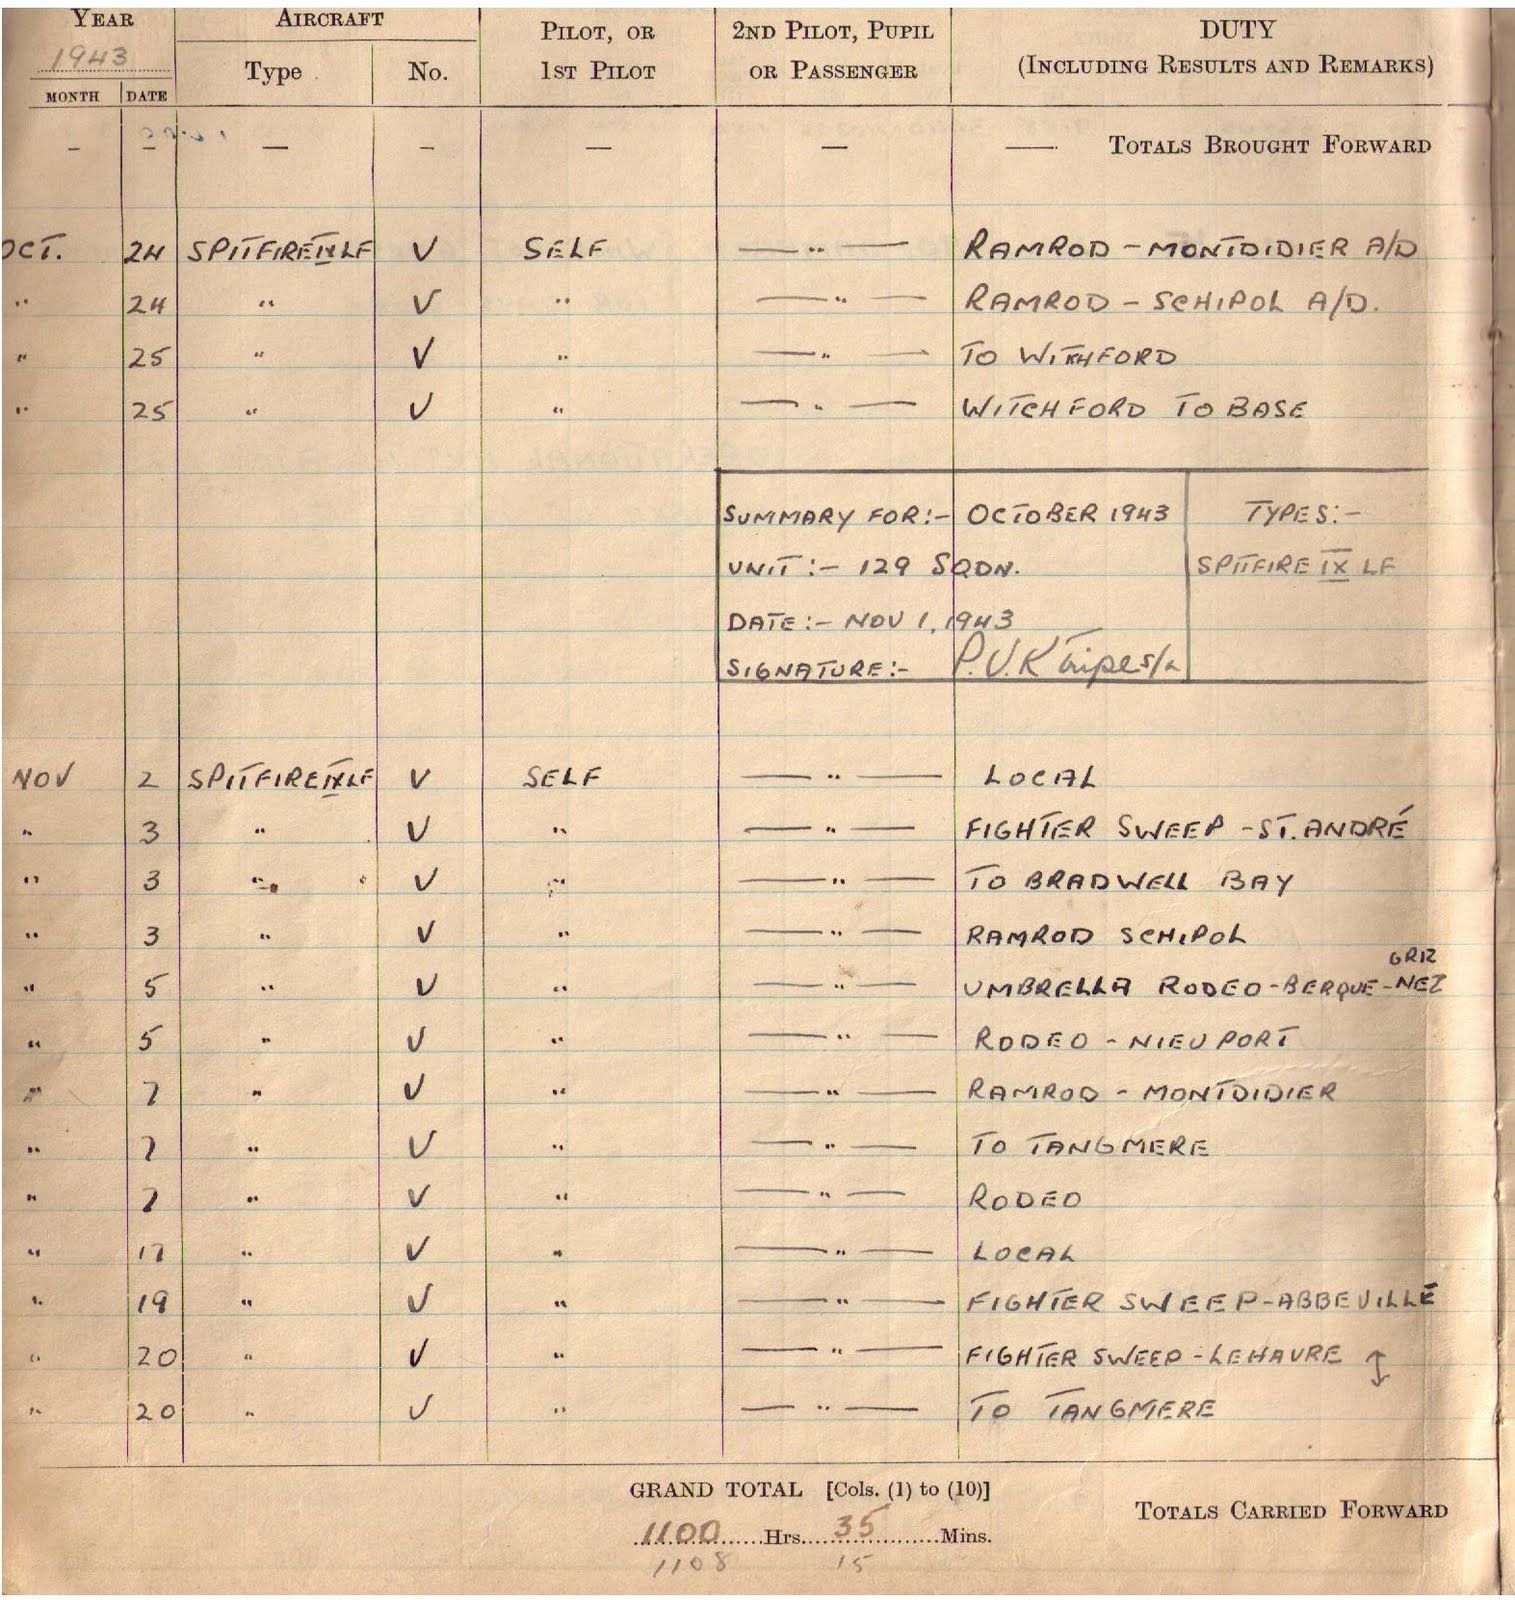 YEAR AIRCRAFT PILOT, OR 2ND PILOT, PUPIL DUTY
1943 Type No. 1ST PILOT OR PASSENGER (INCLUDING RESULTS AND REMARKS)
MONTH DATE
– – — – — — —— TOTALS BROUGHT FORWARD
OCT. 24 SPITFIRE IX LF V SELF — " — RAMROD – MONTDIDIER A/D
" 24 " V " — " — RAMROD – SCHIPOL A/D.
" 25 " V " — " — TO WITHFORD
" 25 " V " — " — WITCHFORD TO BASE
SUMMARY FOR:– OCTOBER 1943 TYPES:–
UNIT:– 129 SQDN. SPITFIRE IX LF
DATE:– NOV 1, 1943
SIGNATURE:– P.V.K
NOV 2 SPITFIRE IX LF V SELF — " — LOCAL
" 3 " V " — " — FIGHTER SWEEP – ST. ANDRÉ
" 3 " V " — " — TO BRADWELL BAY
" 3 " V " — " — RAMROD SCHIPOL
" 5 " V " — " — UMBRELLA RODEO – BERQUE – GRIZ NEZ
" 5 " V " — " — RODEO – NIEUPORT
" 7 " V " — " — RAMROD – MONTDIDIER
" 7 " V " — " — TO TANGMERE
" 7 " V " — " — RODEO
" 17 " V " — " — LOCAL
" 19 " V " — " — FIGHTER SWEEP – ABBEVILLE
" 20 " V " — " — FIGHTER SWEEP – LEHAVRE ↕
" 20 " V " — " — TO TANGMERE
GRAND TOTAL [Cols. (1) to (10)]
TOTALS CARRIED FORWARD
1100 Hrs. 35 Mins.
1108 15